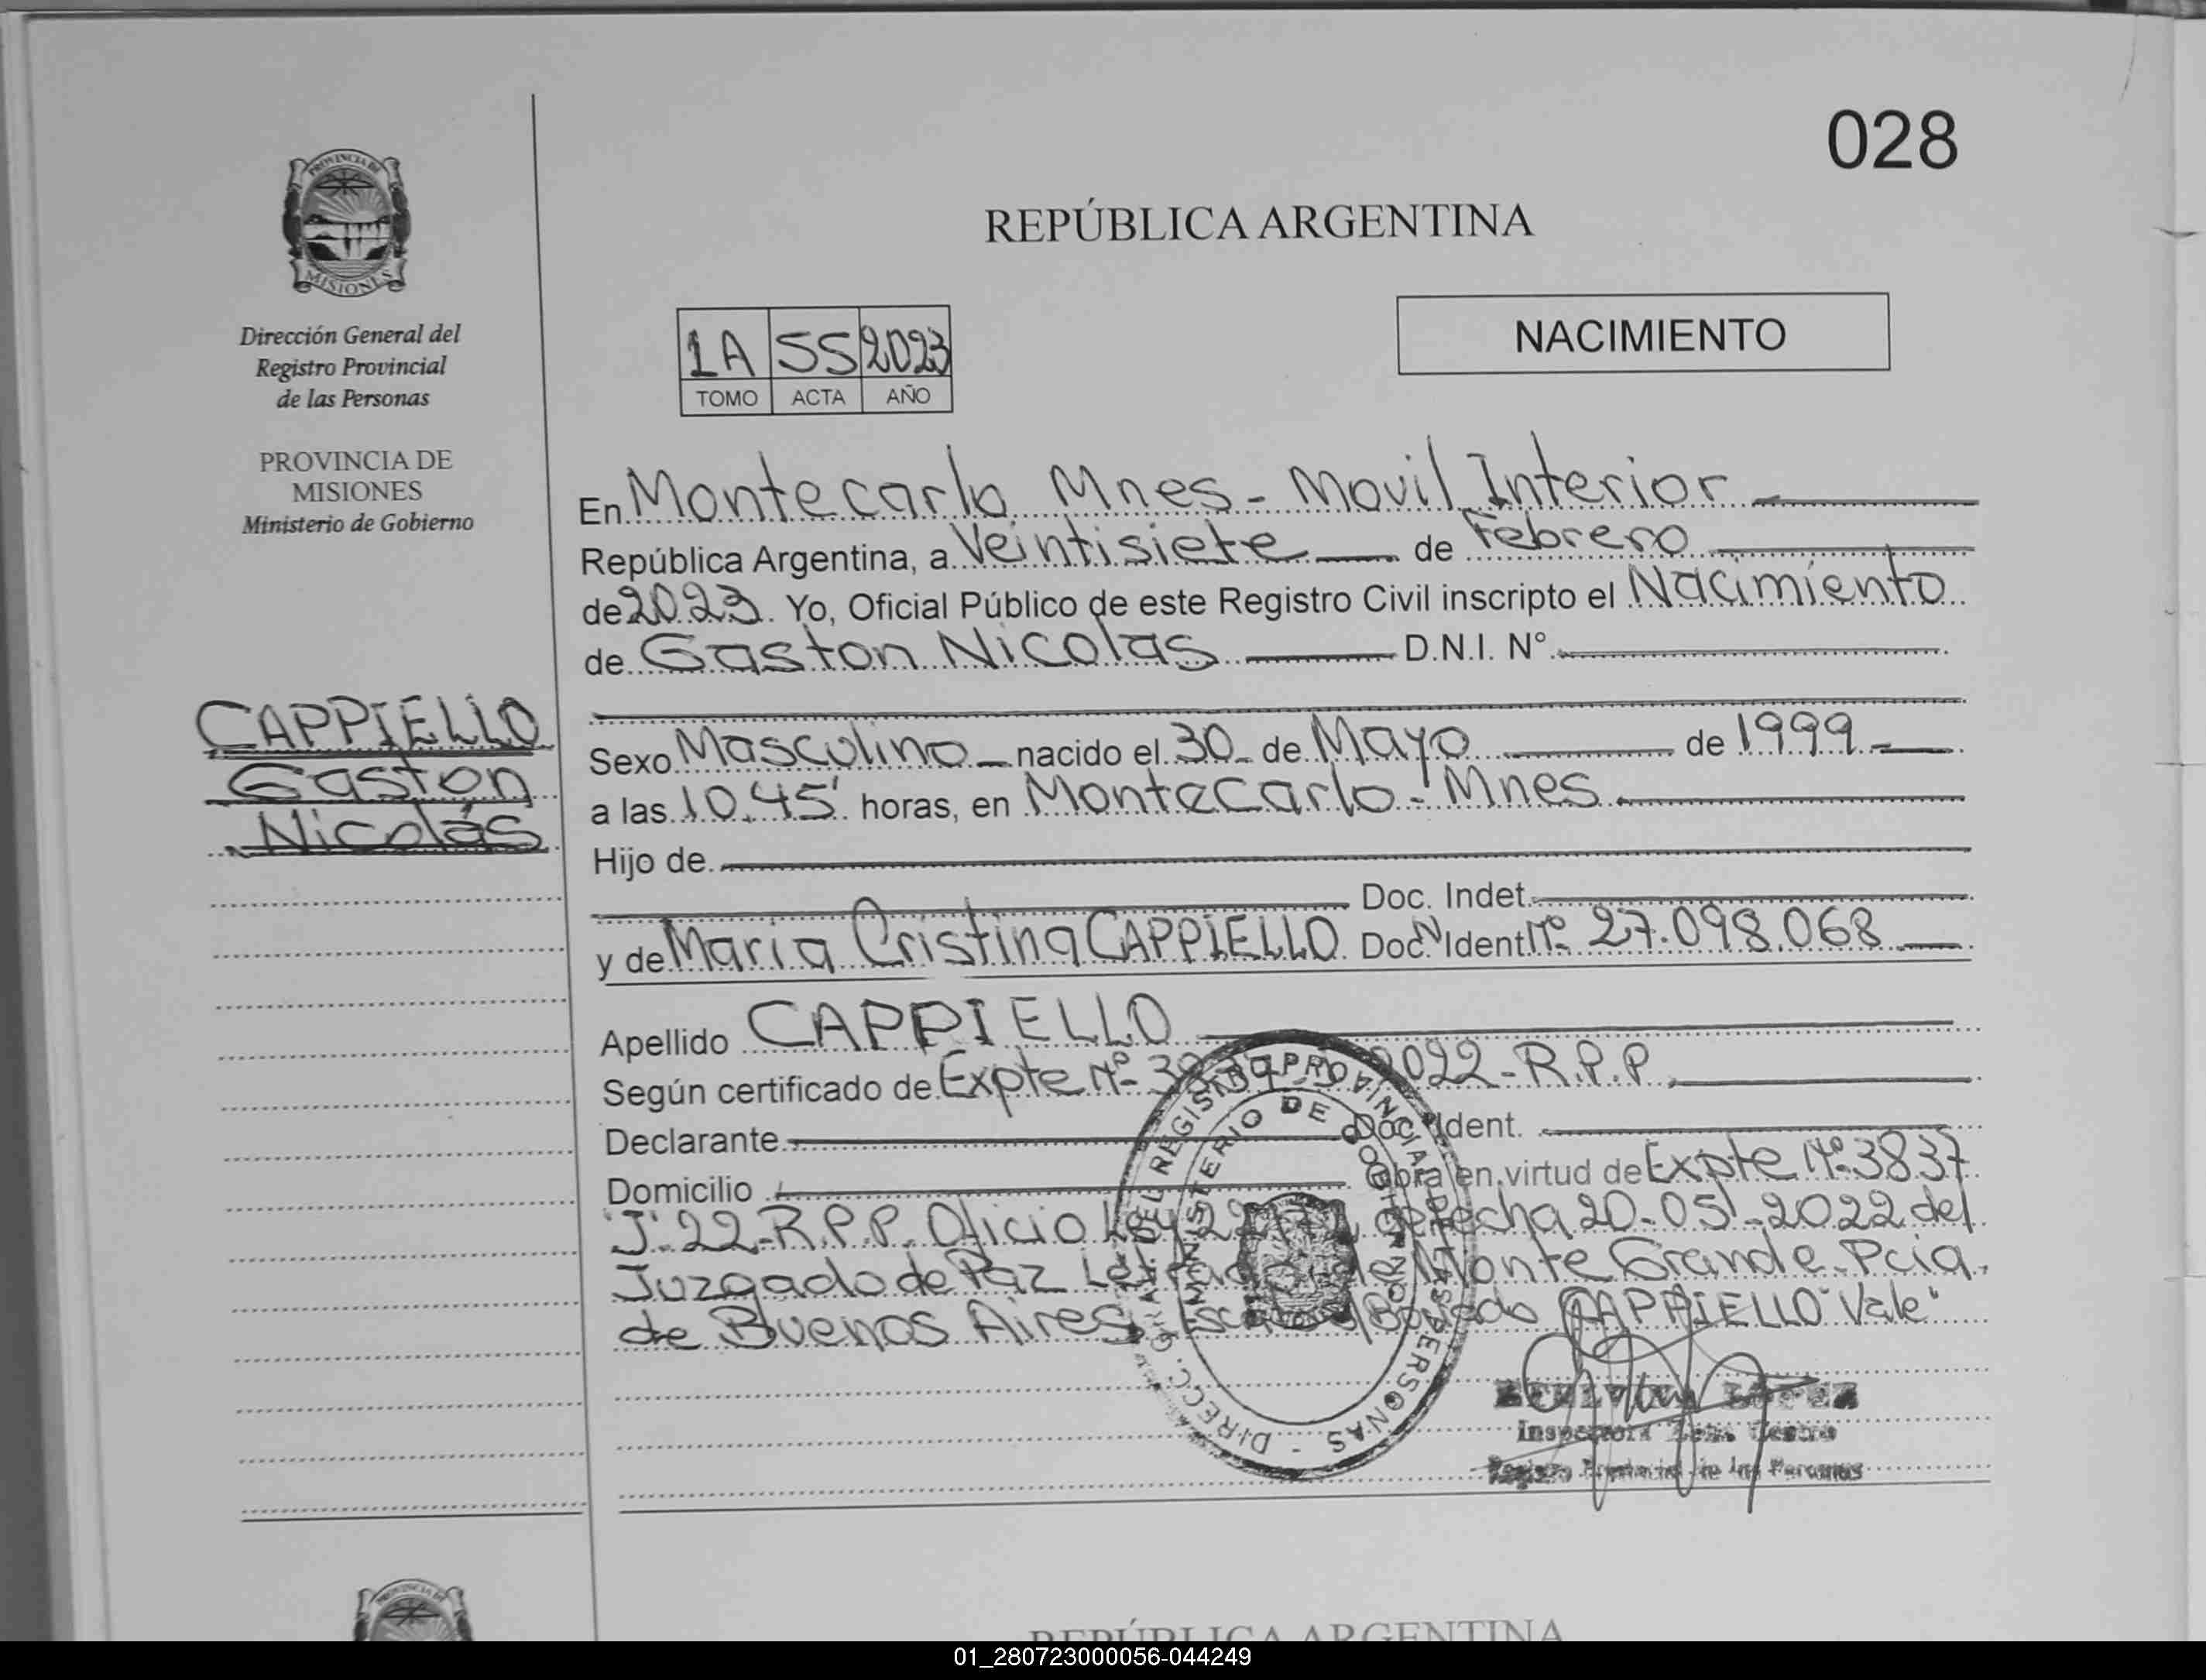 028
REPÚBLICA ARGENTINA
PROVINCIA DE
MISIONES
Dirección General del
Registro Provincial
de las Personas
PROVINCIA DE
MISIONES
Ministerio de Gobierno
1A 55 2023
TOMO ACTA AÑO
NACIMIENTO
En Montecarlo Mnes - Movil Interior
República Argentina, a Veintisiete de Febrero
de 2023. Yo, Oficial Público de este Registro Civil inscripto el Nacimiento
de Gaston Nicolas D.N.I. N°
CAPPIELLO
Gaston
Nicolás
Sexo Masculino nacido el 30 de Mayo de 1999
a las 10.45' horas, en Montecarlo - Mnes
Hijo de
Doc. Indet.
y de Maria Cristina CAPPIELLO Doc. N Ident N° 27.098.068
Apellido CAPPIELLO
Según certificado de Expte N° 2022-R.P.P.
Declarante Doc. Ident.
Domicilio Obra en virtud de Expte N° 3837
"J" 22-R.P.P. Oficio Ley de fecha 20-05-2022 del
Juzgado de Paz Letrado de Monte Grande Pcia.
de Buenos Aires CAPPIELLO "Vale"
DIRECC. GRAL. DEL REGISTRO PROVINCIAL DE LAS PERSONAS
MINISTERIO DE GOBIERNO
LOPEZ
Inspectora Zona Centro
Registro Provincial de las Personas
REPÚBLICA ARGENTINA
01_280723000056-044249